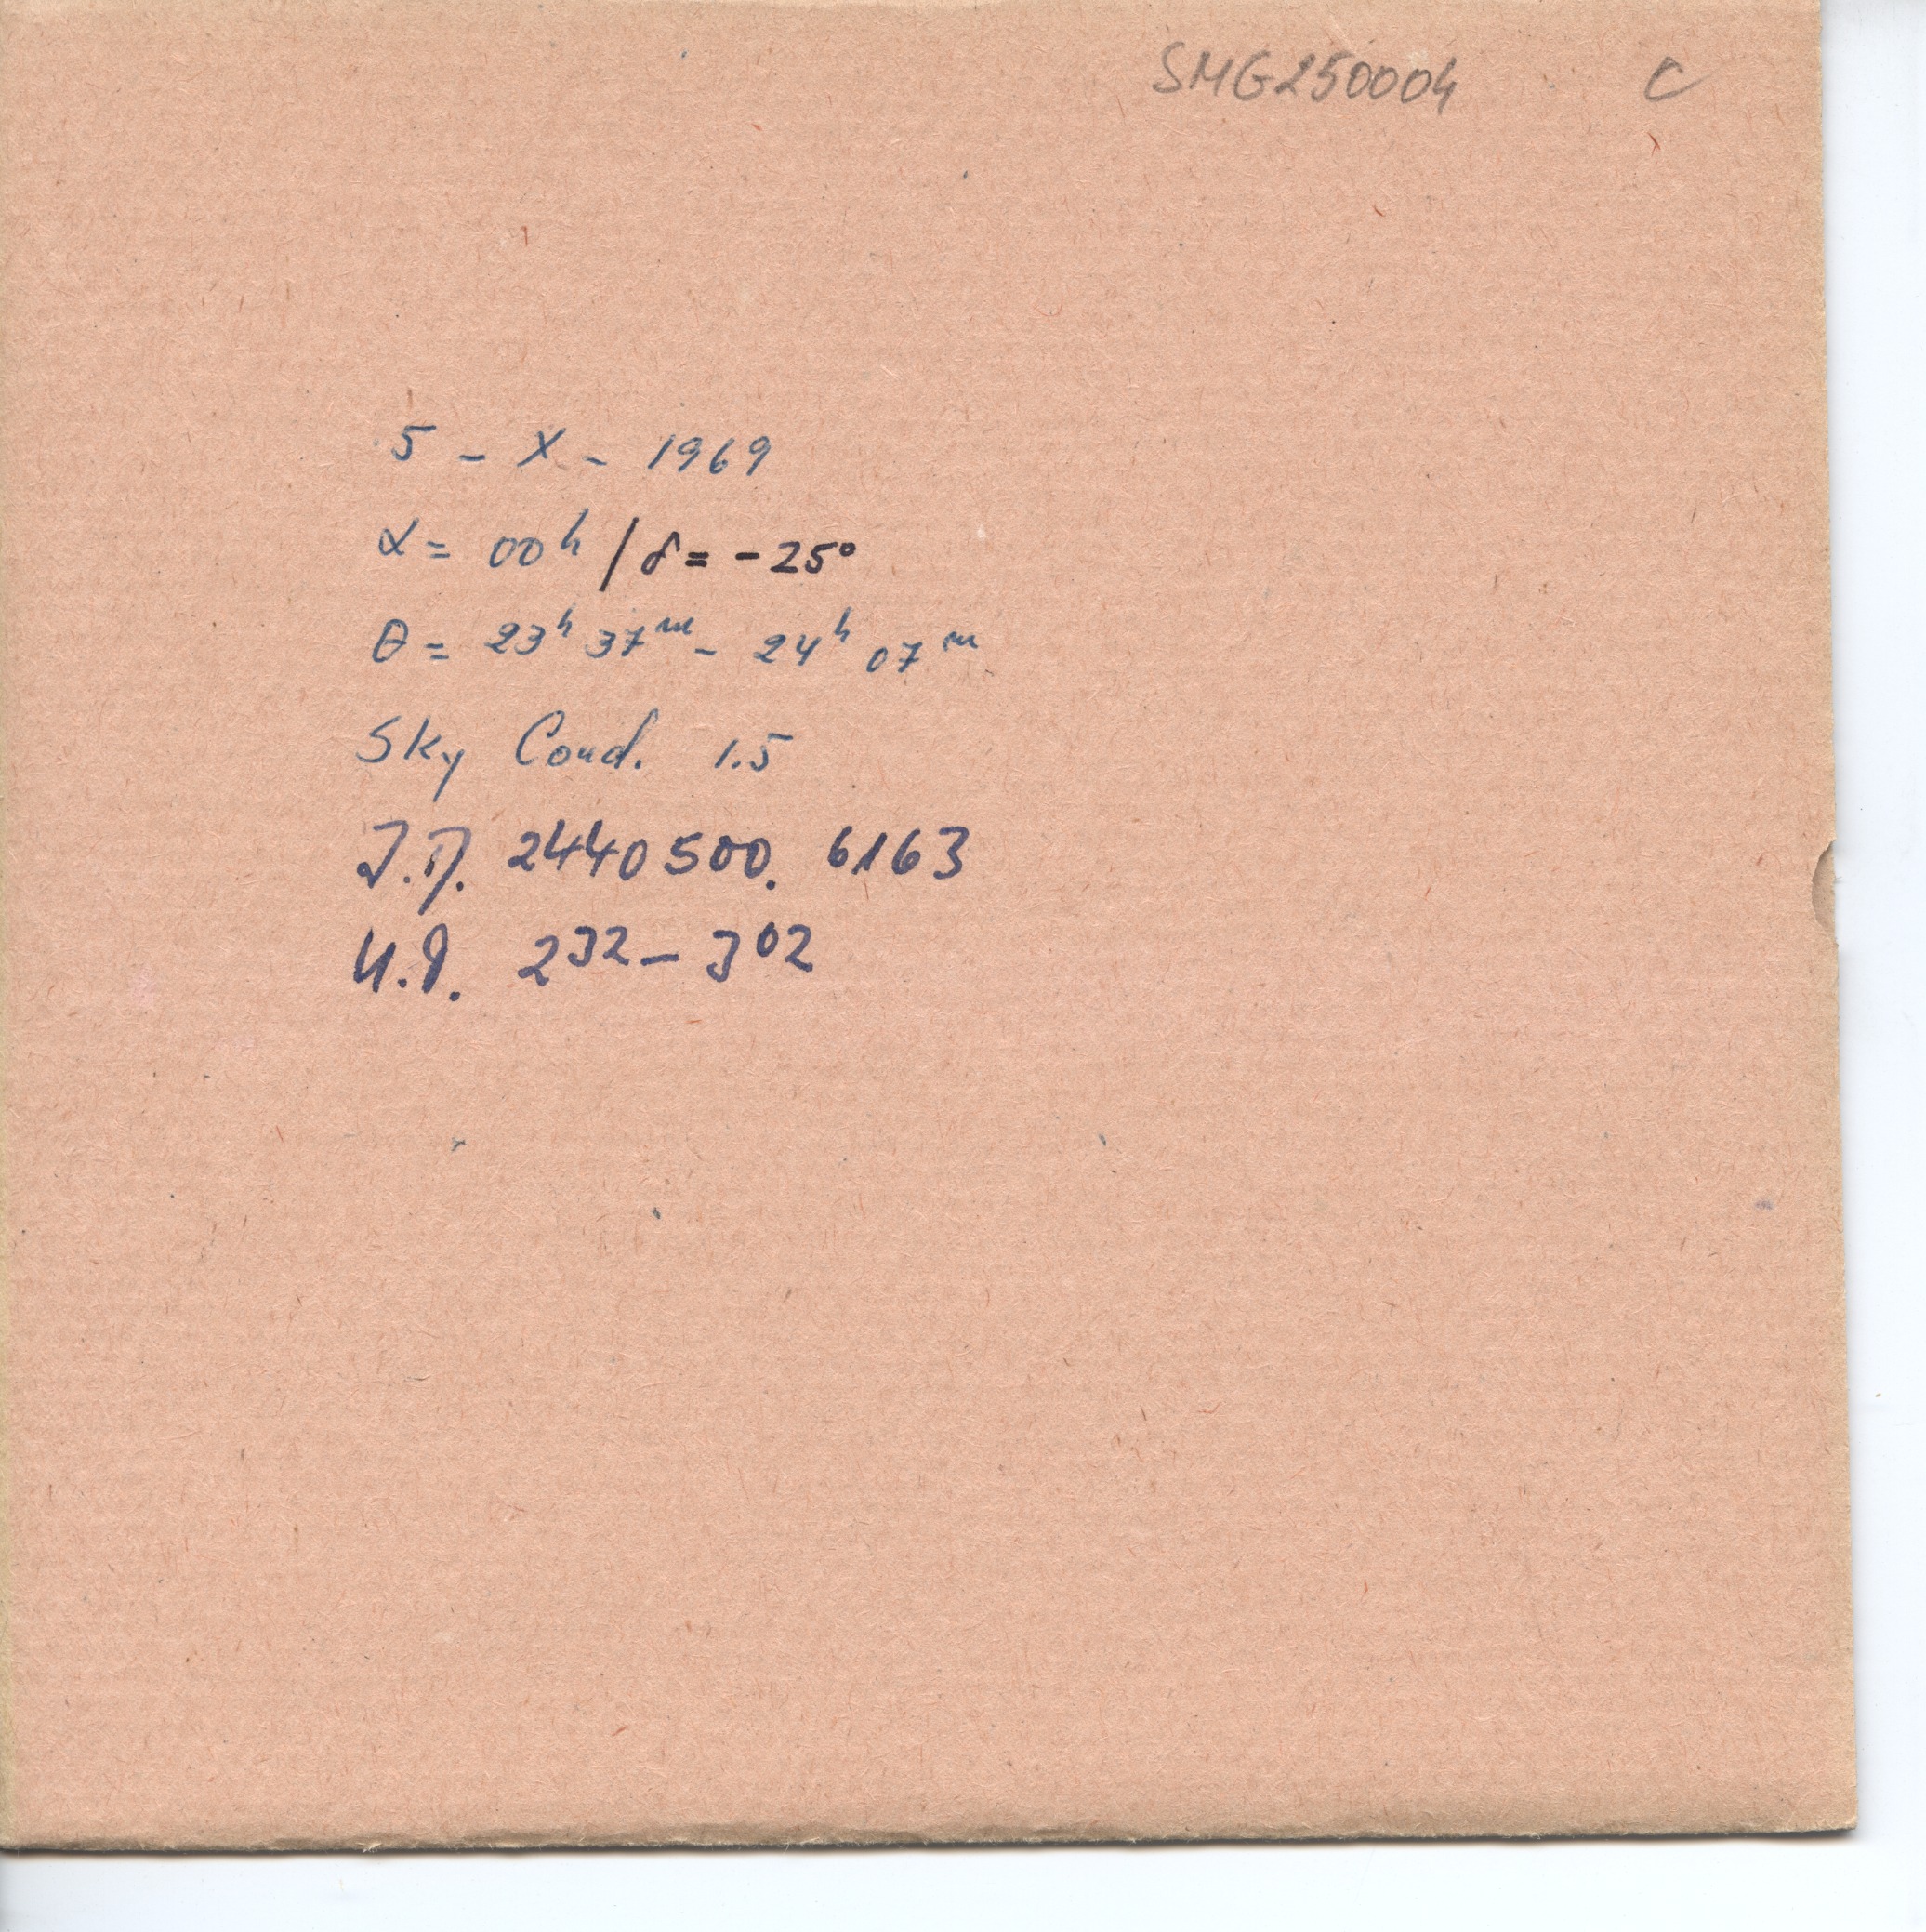 SMG250004 C
5 - X - 1969
α = 00ʰ / δ = -25°
θ = 23ʰ 37ᵐ - 24ʰ 07ᵐ
Sky Cond. 1.5
J.D. 2440500.6163
U.T. 2³² - 3⁰²